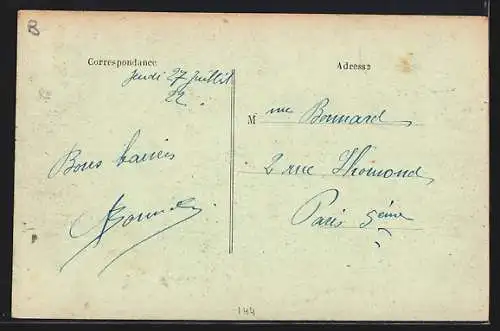 B
Correspondance
Jeudi 27 Juillet
22.
Bons baisers
Adresse
Mme Bonnard
2 rue Thomond
Paris 5ème
144